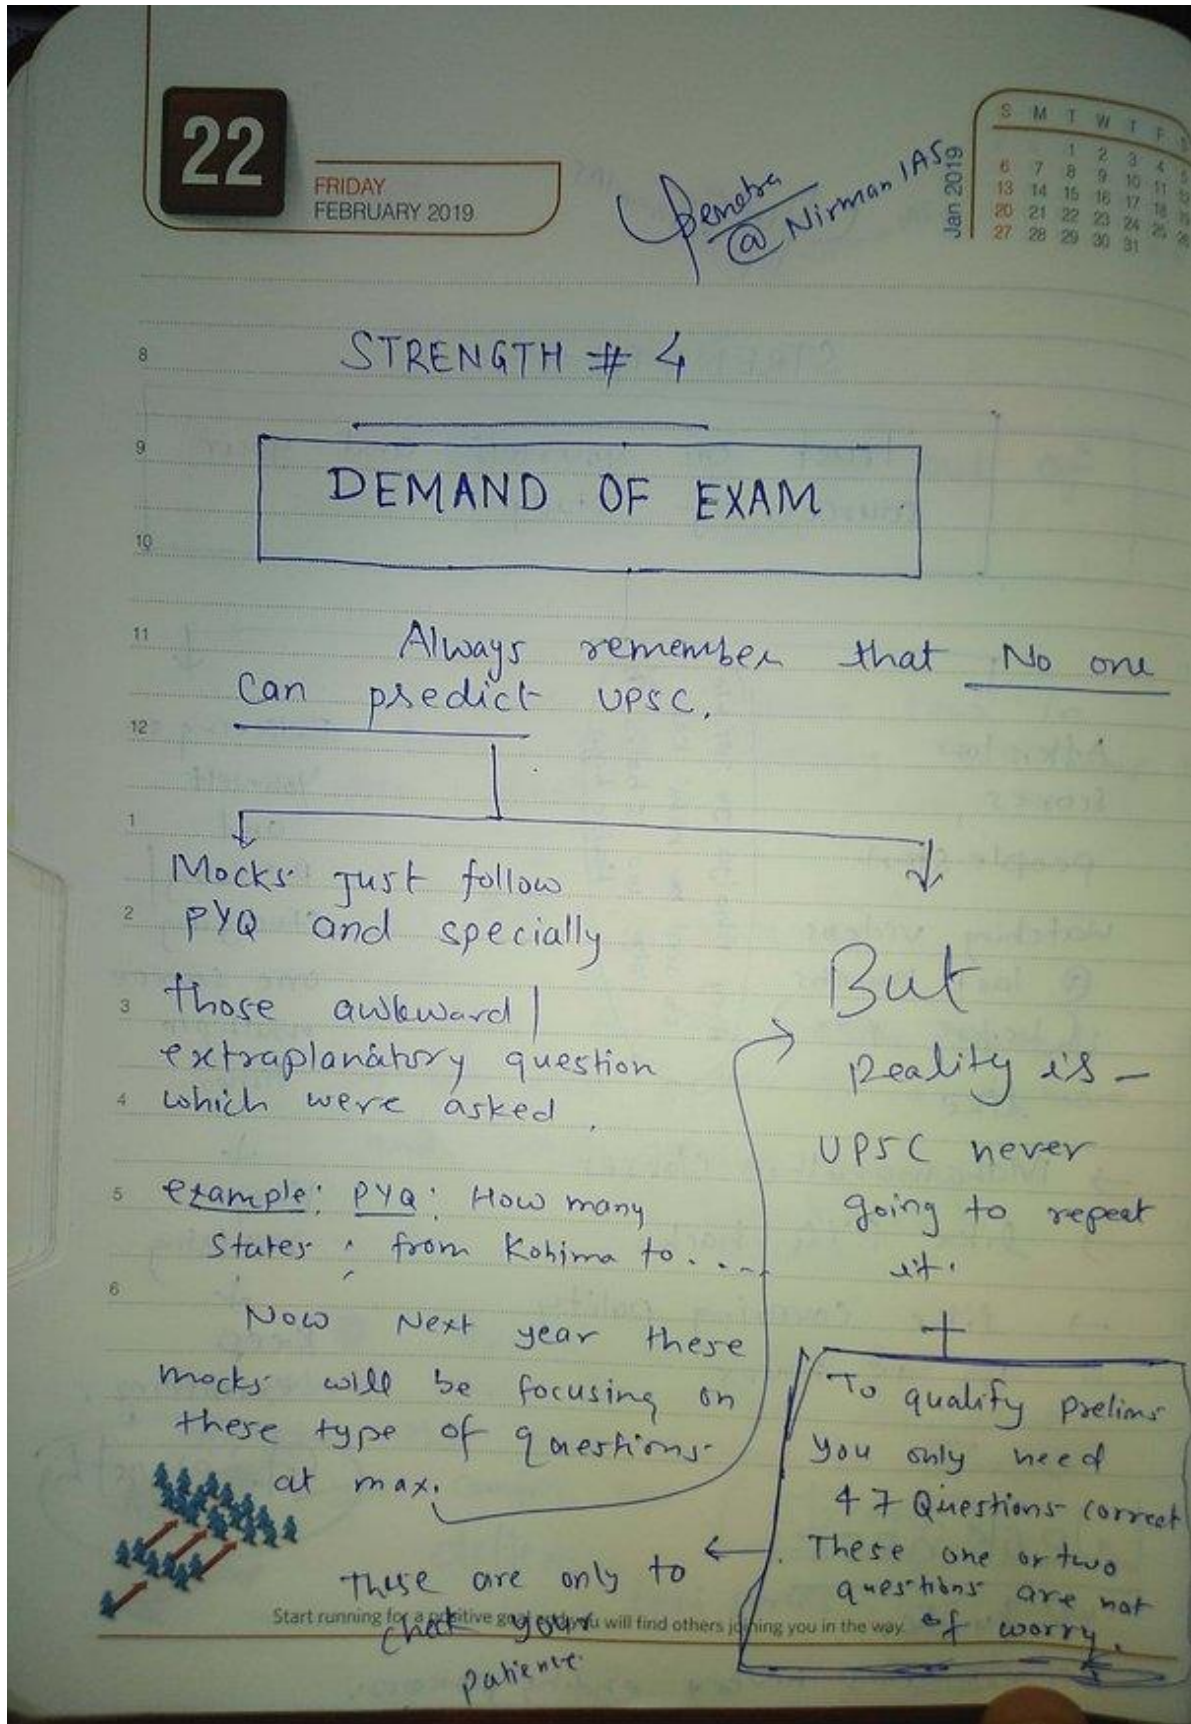 22
FRIDAY
FEBRUARY 2019
@ Nirman IAS
Jan 2019
S M T W T F S
1 2 3 4 5
6 7 8 9 10 11 12
13 14 15 16 17 18 19
20 21 22 23 24 25 26
27 28 29 30 31
8
STRENGTH # 4
9
DEMAND OF EXAM
10
11
Always remember that No one
can predict UPSC.
12
1
Mocks just follow
2
PYQ and specially
3
those awkward/
extraplanatory question
4
which were asked.
5
example: PYQ: How many
States ; from Kohima to. . ...
6
Now Next year these
mocks will be focusing on
these type of questions
at max.
But
Reality is –
UPSC never
going to repeat
it.
+
To qualify prelims
you only need
47 Questions correct
These one or two
questions are not
of worry.
These are only to
check your
patience.
Start running for a positive goal and you will find others joining you in the way.